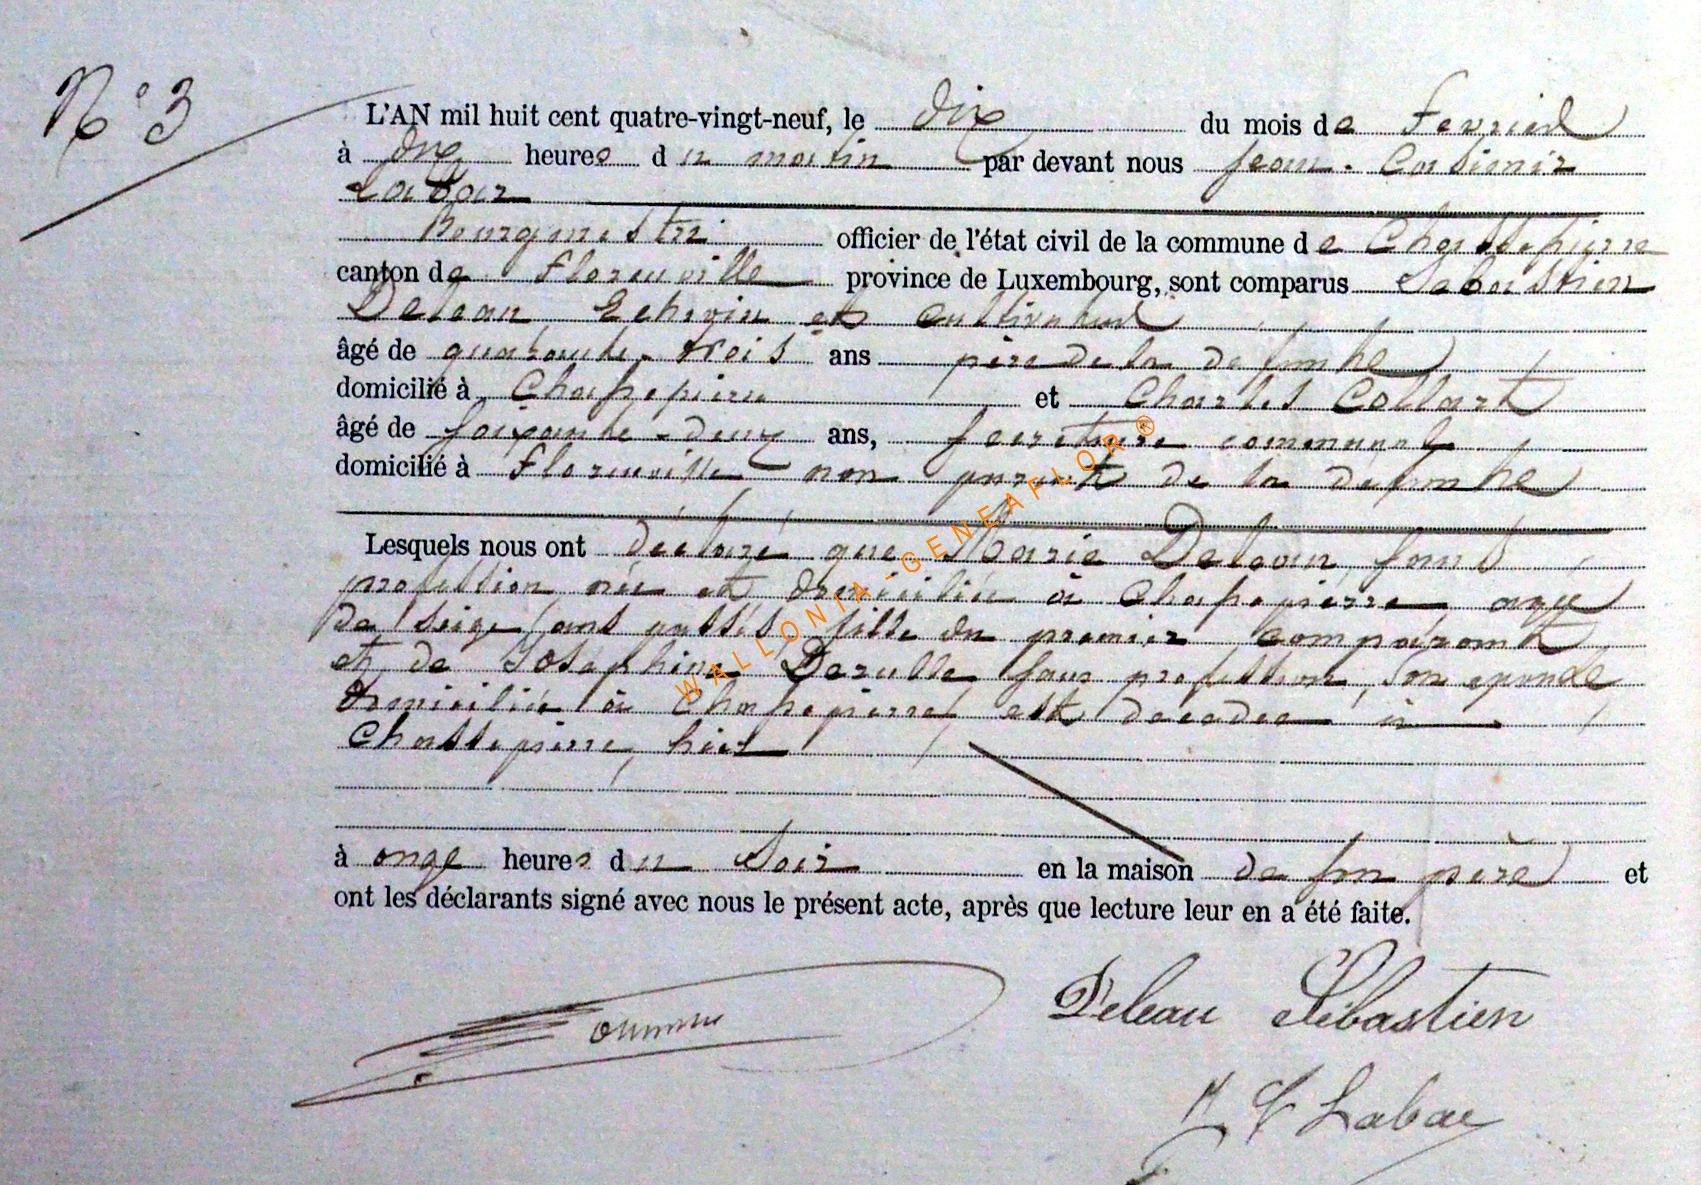 N° 3
L'AN mil huit cent quatre-vingt-neuf, le dix du mois de fevrier
à dix heures du matin par devant nous Jean-Casimir
Labar
Bourgmestre officier de l'état civil de la commune de Chassepierre
canton de Florenville province de Luxembourg, sont comparus Sebastien
Deleau Echevin et cultivateur
âgé de quarante-trois ans père de la defunte
domicilié à Chassepierre et Charles Collart
âgé de soixante-deux ans, secretaire communal
domicilié à Florenville non parent de la défunte
Lesquels nous ont déclaré que Marie Deleau, sans
profession née et domiciliée à Chassepierre agée
de seize ans passés, fille du premier comparant
et de Joséphine sans profession, son epouse
domiciliée à Chassepierre, est decedee à
Chassepierre, hier
à onze heures du soir en la maison de son père et
ont les déclarants signé avec nous le présent acte, après que lecture leur en a été faite.
Deleau Sébastien
Labar
WALLONIA-GENEAFLOR ®